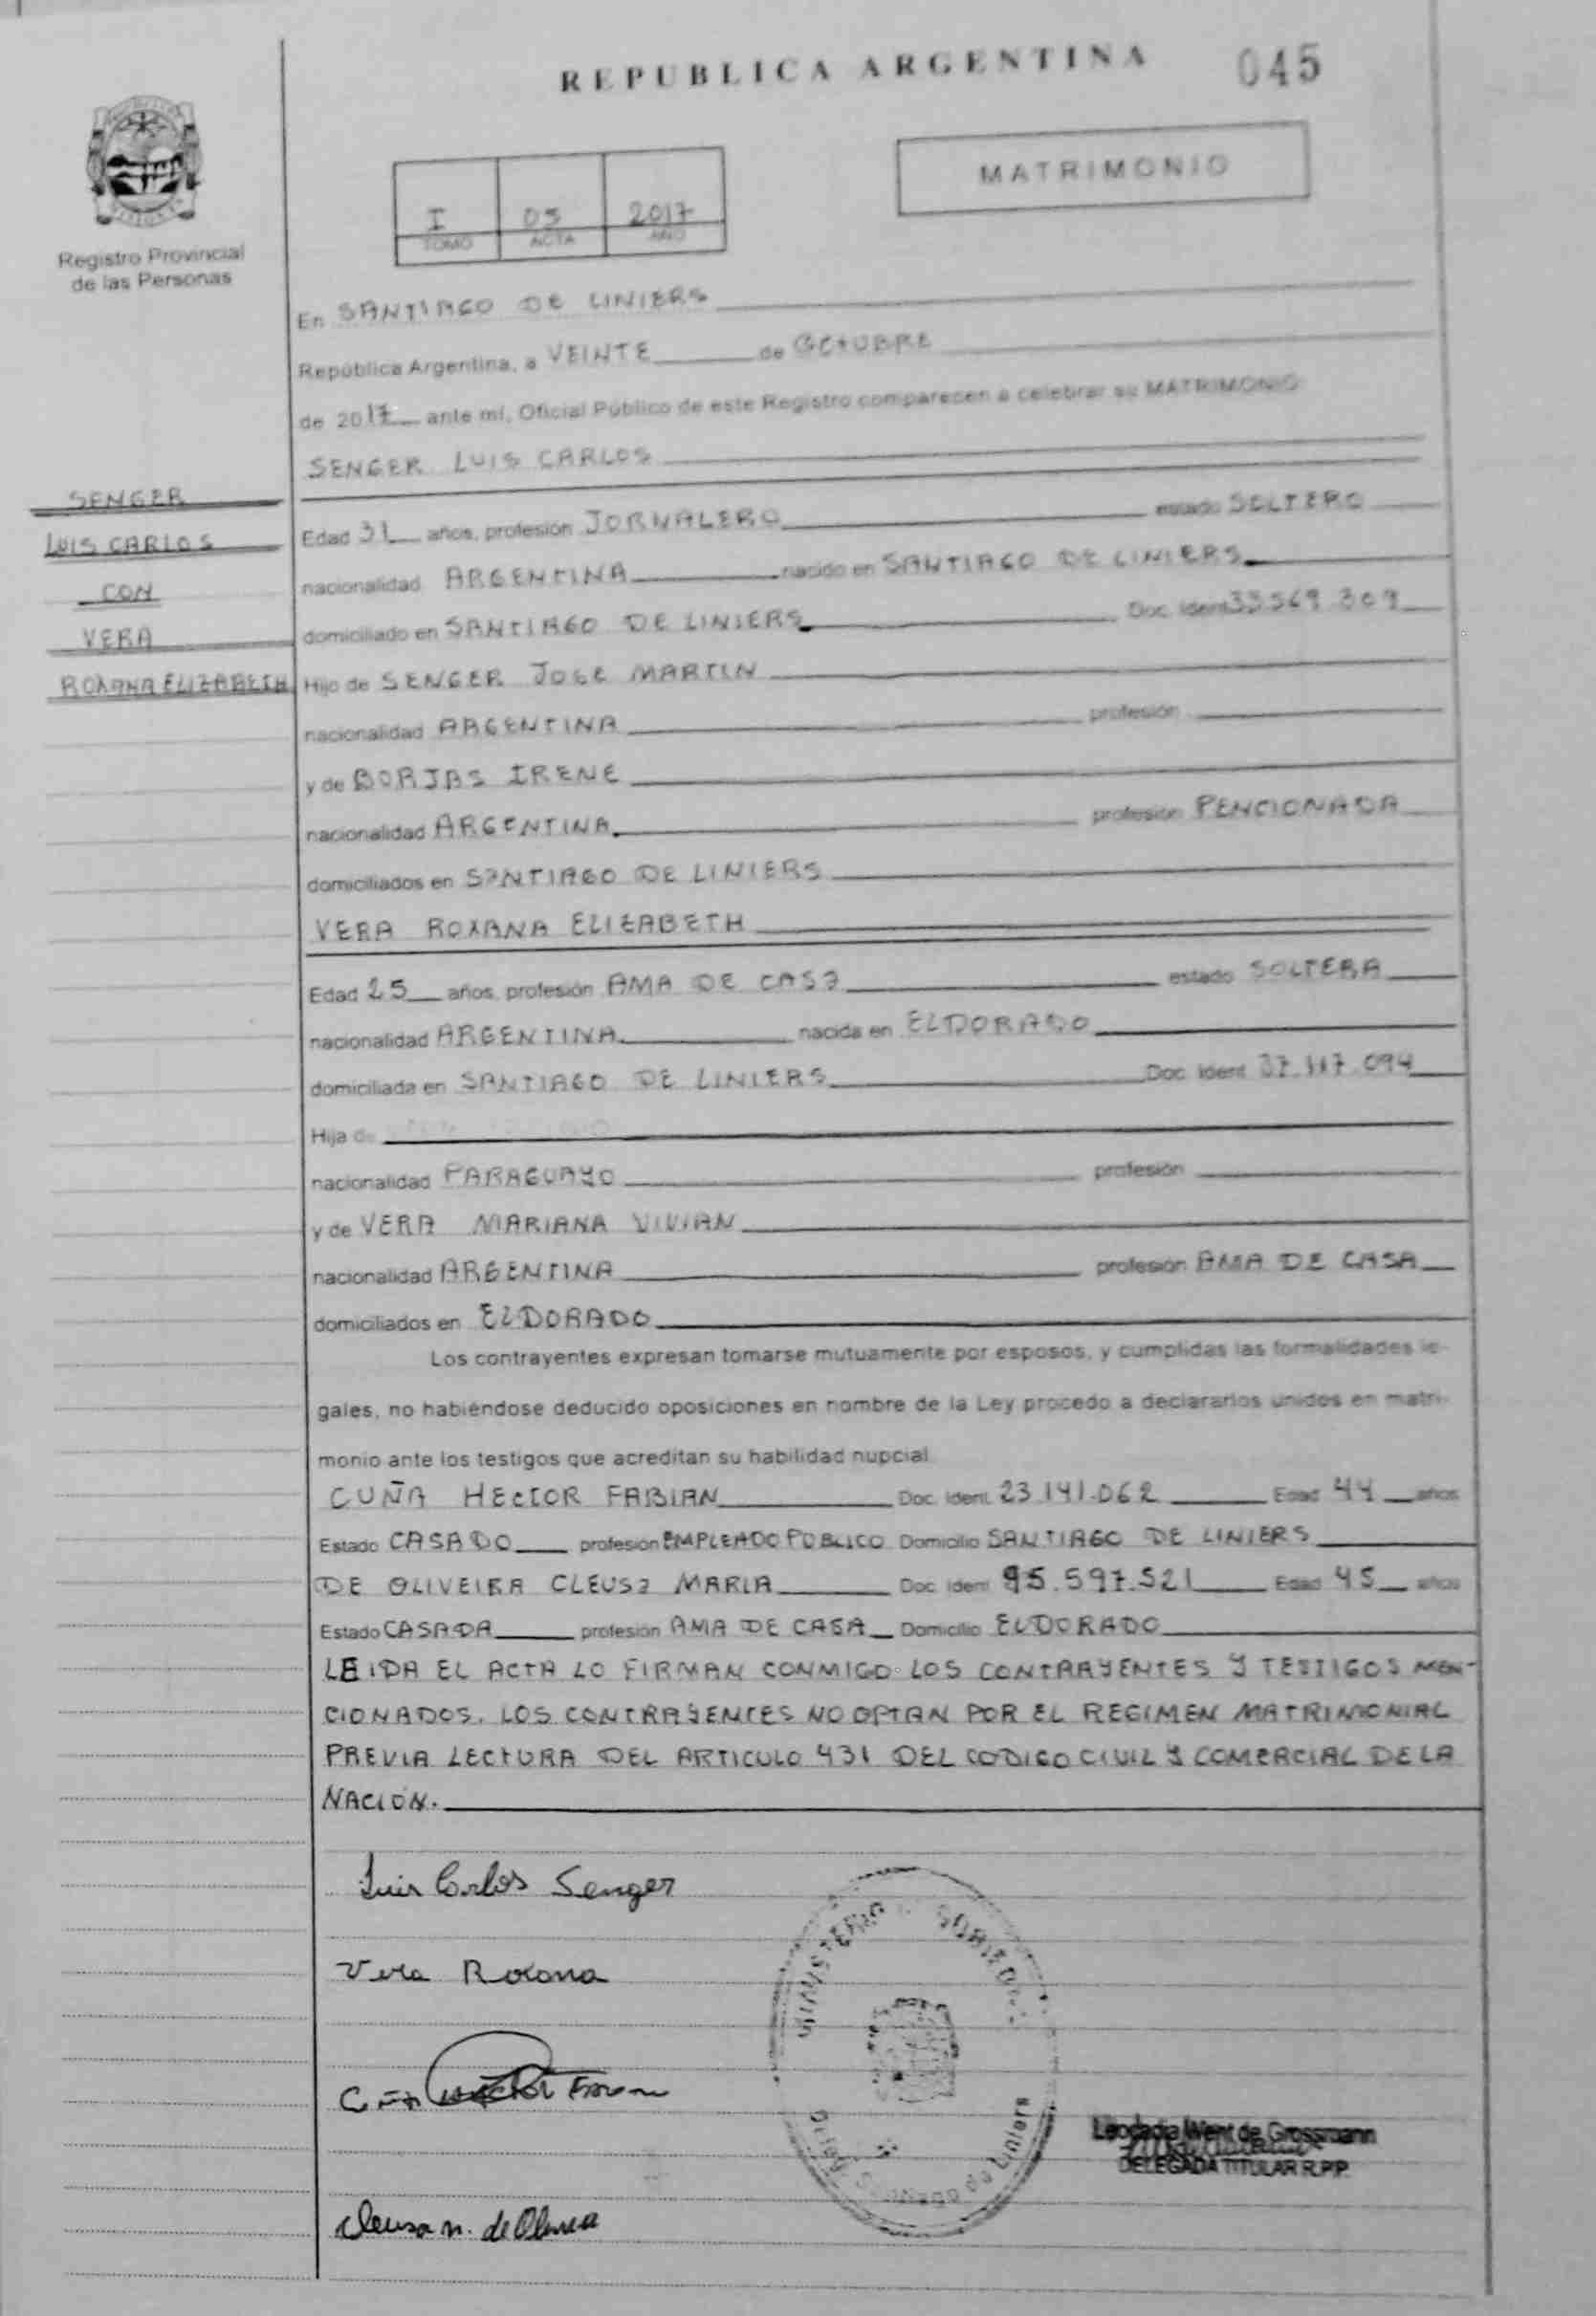 REPUBLICA ARGENTINA
045
MATRIMONIO
I 05 2017
TOMO ACTA AÑO
Registro Provincial
de las Personas
En SANTIAGO DE LINIERS
República Argentina, a VEINTE de OCTUBRE
de 2017 ante mí, Oficial Público de este Registro comparecen a celebrar su MATRIMONIO:
SENGER LUIS CARLOS
SENGER
LUIS CARLOS
CON
VERA
ROXANA ELIZABETH
Edad 31 años, profesión JORNALERO estado SOLTERO
nacionalidad ARGENTINA nacido en SANTIAGO DE LINIERS
domiciliado en SANTIAGO DE LINIERS Doc. Ident. 33.569.309
Hijo de SENGER JOSE MARTIN
nacionalidad ARGENTINA profesión
y de BORJAS IRENE
nacionalidad ARGENTINA profesión PENCIONADA
domiciliados en SANTIAGO DE LINIERS
VERA ROXANA ELIZABETH
Edad 25 años, profesión AMA DE CASA estado SOLTERA
nacionalidad ARGENTINA nacida en ELDORADO
domiciliada en SANTIAGO DE LINIERS Doc. Ident. 37.117.094
Hija de
nacionalidad PARAGUAYO profesión
y de VERA MARIANA VIVIAN
nacionalidad ARGENTINA profesión AMA DE CASA
domiciliados en ELDORADO
Los contrayentes expresan tomarse mutuamente por esposos, y cumplidas las formalidades le-
gales, no habiéndose deducido oposiciones en nombre de la Ley procedo a declararlos unidos en matri-
monio ante los testigos que acreditan su habilidad nupcial
CUÑA HECTOR FABIAN Doc. Ident. 23.141.062 Edad 44 años
Estado CASADO profesión EMPLEADO PUBLICO Domicilio SANTIAGO DE LINIERS
DE OLIVEIRA CLEUSA MARIA Doc. Ident. 95.597.521 Edad 45 años
Estado CASADA profesión AMA DE CASA Domicilio ELDORADO
LEIDA EL ACTA LO FIRMAN CONMIGO LOS CONTRAYENTES Y TESTIGOS MEN-
CIONADOS. LOS CONTRAYENTES NO OPTAN POR EL REGIMEN MATRIMONIAL
PREVIA LECTURA DEL ARTICULO 431 DEL CODIGO CIVIL Y COMERCIAL DE LA
NACIÓN.
Luis Carlos Senger
Vera Roxana
MINISTERIO GOBIERNO
Santiago de Liniers
Leocadia Went de Grossmann
DELEGADA TITULAR R.P.P.
Cleusa M. de Oliveira